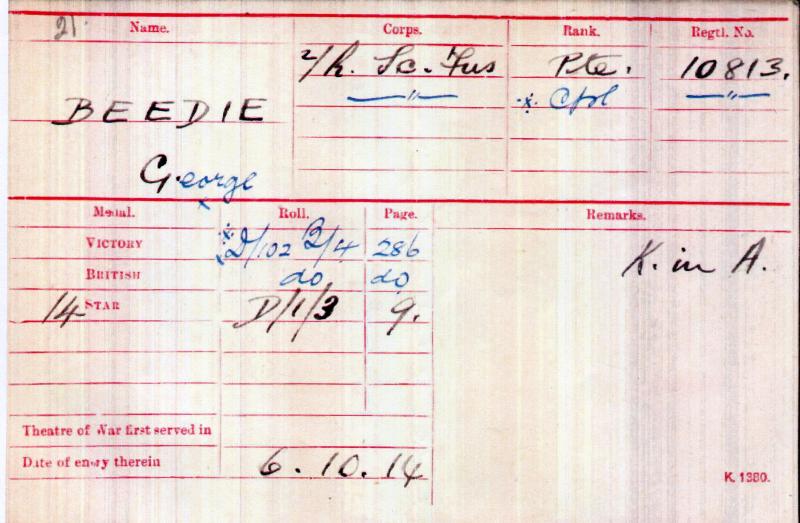 21.
Name. Corps. Rank. Regtl. No.
2/R. Sc. Fus Pte. 10813.
BEEDIE —"— x Cpl —"—
George
x
Medal. Roll. Page. Remarks.
VICTORY x D/102 B/4 286 K. in A.
BRITISH do do
14 STAR D/1/3 9.
Theatre of War first served in
Date of entry therein 6.10.14
K. 1380.